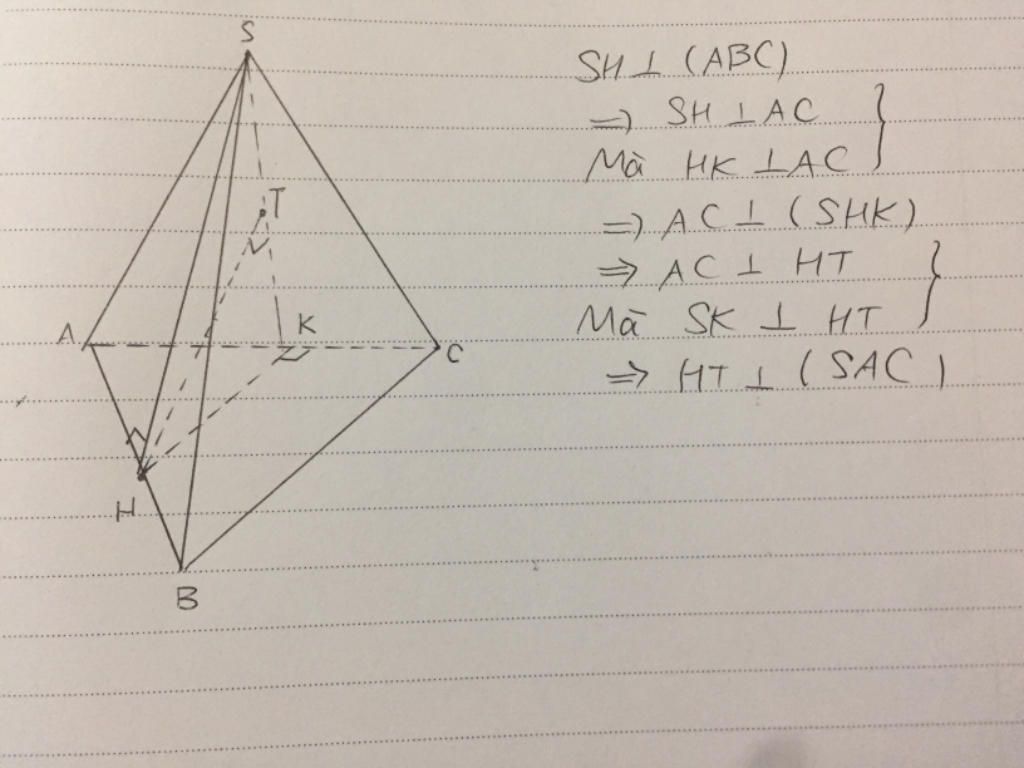 S
T
A
K
C
H
B
SH ⊥ (ABC)
=> SH ⊥ AC
Mà HK ⊥ AC
=> AC ⊥ (SHK)
=> AC ⊥ HT
Mà SK ⊥ HT
=> HT ⊥ (SAC)